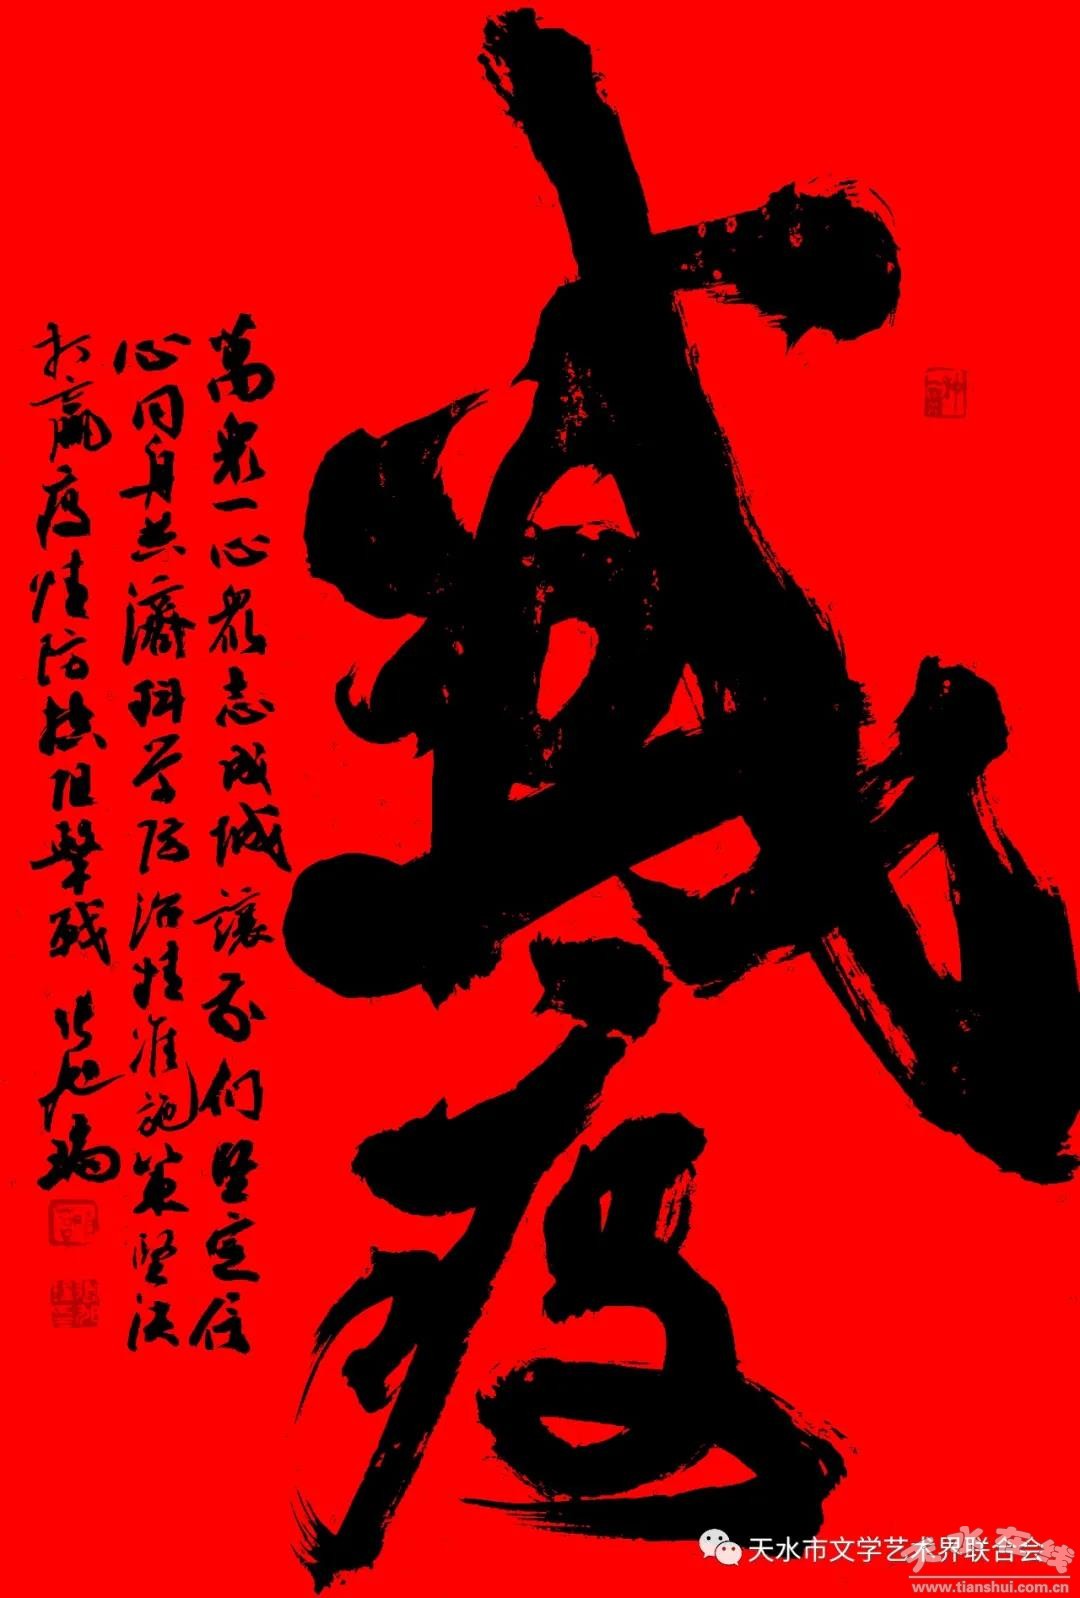 戰疫
萬衆一心衆志成城讓我们坚定信
心同舟共濟科学防治精准施策坚决
打赢疫情防控阻擊战
天水市文学艺术界联合会
天水在线
www.tianshui.com.cn